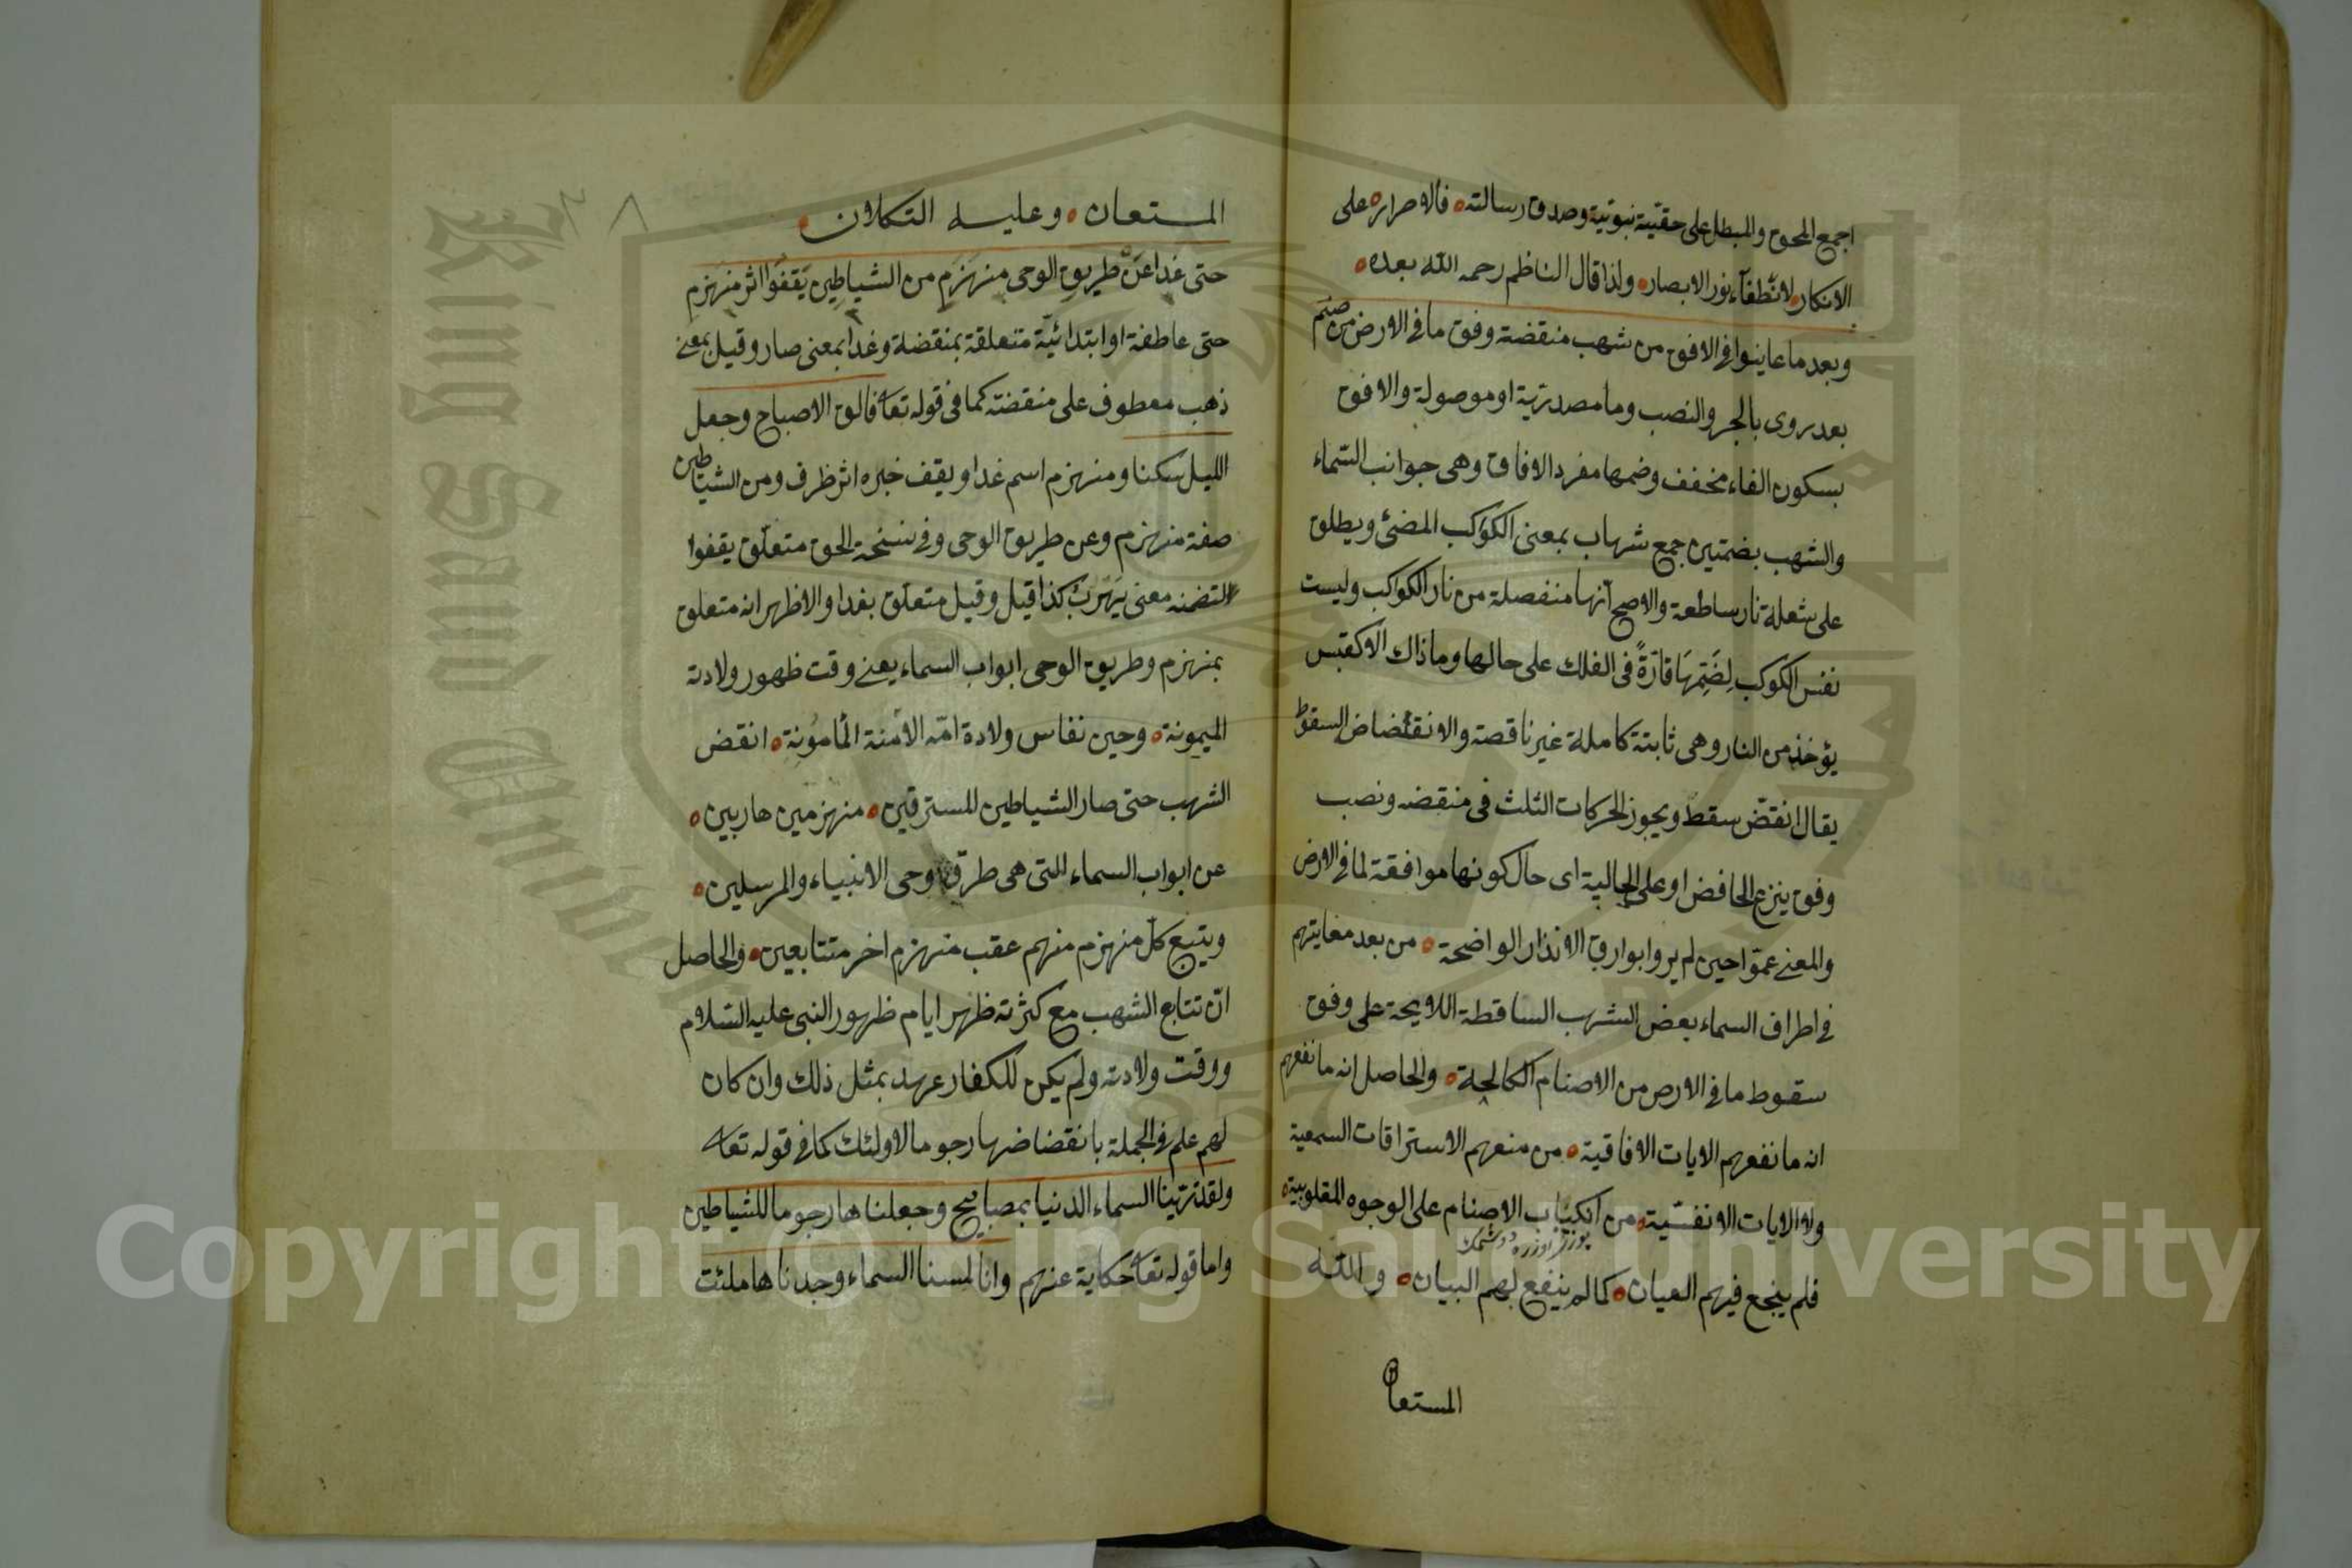 اجمع المحق والمبطل على حقيّة نبوتية وصدق رسالته ه فالاصراره على
الانكاره لانّطفآء نور الابصاره ولذا قال الناظم رحمه الله بعده ه
وبعد ما عاينوا فى الافق من شهب منقضة وفق ما فى الارض من صنم
بعد روى بالجر والنصب وما مصدريّة او موصولة والافق
بسكون الفاء مخفف وضمها مفرد الافاق وهى جوانب السّماء
والشهب بضمتين جمع شهاب بمعنى الكوكب المضئ ويطلق
على شعلة نار ساطعة والاصح انها منفصلة من نار الكواكب وليست
نفس الكوكب لِضَتِمهَا قارّةً فى الفلك على حالها وما ذاك الا كقبس
يؤخذ من النار وهى ثابتة كاملة غير ناقصة والانقضاض السقوط
يقال انقضّ سقط ويجوز الحركات الثلث فى منقضه ونصب
وفق ينزع الخافض او على الحالية اى حال كونها موافقة لما فى الارض
والمعنى عموا حين لم يروا بوارق الانذار الواضحة ه من بعد معاينتهم
فى اطراف السماء بعض الشهب الساقطة اللايحة على وفق
سقوط ما فى الارض من الاصنام الكالحة ه والحاصل انه ما نفعهم
انه ما نفعهم الايات الافاقية ه من منعهم الاستراقات السمعية
ولا الايات الانفسّية ه من انكباب الاصنام على الوجوه المقلوبية ه
يوزلر اوزره دوشمك
فلم ينجع فيهم العيان ه كما لم ينفع لهم البيان ه والله
المستعان
المستعان ه وعليه التكلان ه
حتى غدا عَنْ طريقِ الوحى منهَزِم من الشياطِينِ يَقفُوا اثر منهَزم
حتى عاطفة او ابتدائيّة متعلقة بمنقضة وغدا بمعنى صار وقيل بمعنى
ذهب معطوف على منقضته كما فى قوله تعا فالق الاصباح وجعل
الليل سكنا ومنهزم اسم غدا ويقف خبره اثر ظرف ومن الشياطين
صفة منهزم وعن طريق الوحى وفى نسخة الحق متعلّق يقفوا
لتضمنه معنى يَهْرَبُ كذا قيل وقيل متعلّق بغدا والاظهر انه متعلق
بمنهزم وطريق الوحى ابواب السماء يعنى وقت ظهور ولادته
الميمونة ه وحين نفاس ولادة امّه الآمنة المأمونةِ ه انقض
الشهب حتى صار الشياطين للسترقين ه منهزمين هاربين ه
عن ابواب السماء اللتى هى طرق وحى الانبياء والمرسلين ه
ويتبع كلّ منهزم منهم عقب منهزم اخر متتابعين ه والحاصل
انّ تتابع الشهب مع كثرته ظهر ايام ظهور النبى عليه السّلام
ووقت ولادته ولم يكن للكفار عهد بمثل ذلك وان كان
لهم علم فى الجملة بانقضاضها رجوما لاولئك كما فى قوله تعا
ولقد زيّنا السماء الدنيا بمصابيح وجعلناها رجوما للشياطين
واما قوله تعا حكاية عنهم وانا لمسنا السماء وجدناها ملئت
King Saud University
Copyright © King Saud University